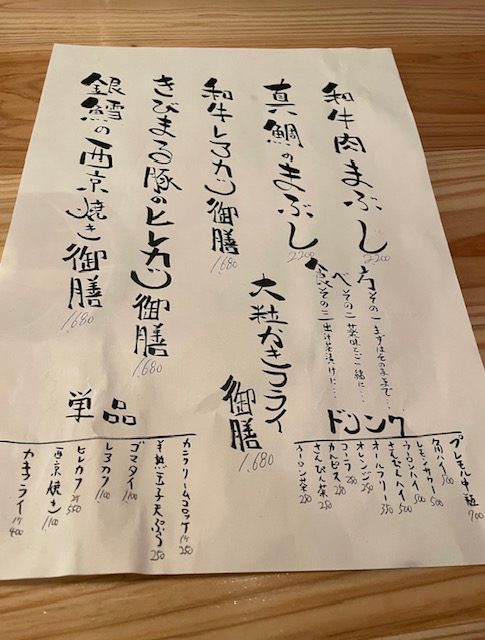 和牛肉まぶし
2200
食べ方
その一 まずはそのままで…
その二 薬味とご一緒に…
その三 出汁茶漬けに…
真鯛のまぶし
2200
大粒かきフライ御膳
1,680
和牛レアカツ御膳
1,680
きびまる豚のヒレカツ御膳
1,680
銀鱈の西京焼き御膳
1,680
ドリンク
プレモル中瓶 700
角ハイ 500
レモンサワー 500
さんぴんハイ 500
ウーロンハイ 500
オールフリー 350
オレンジ 250
コーラ 250
カルピス 250
さんぴん茶 250
ウーロン茶 250
単品
カニクリームコロッケ 1ケ 250
半熟玉子天ぷら 250
ゴマタイ 1,100
レアカツ 1,100
ヒレカツ 2ケ 550
西京焼き 1,100
カキフライ 1ケ 400